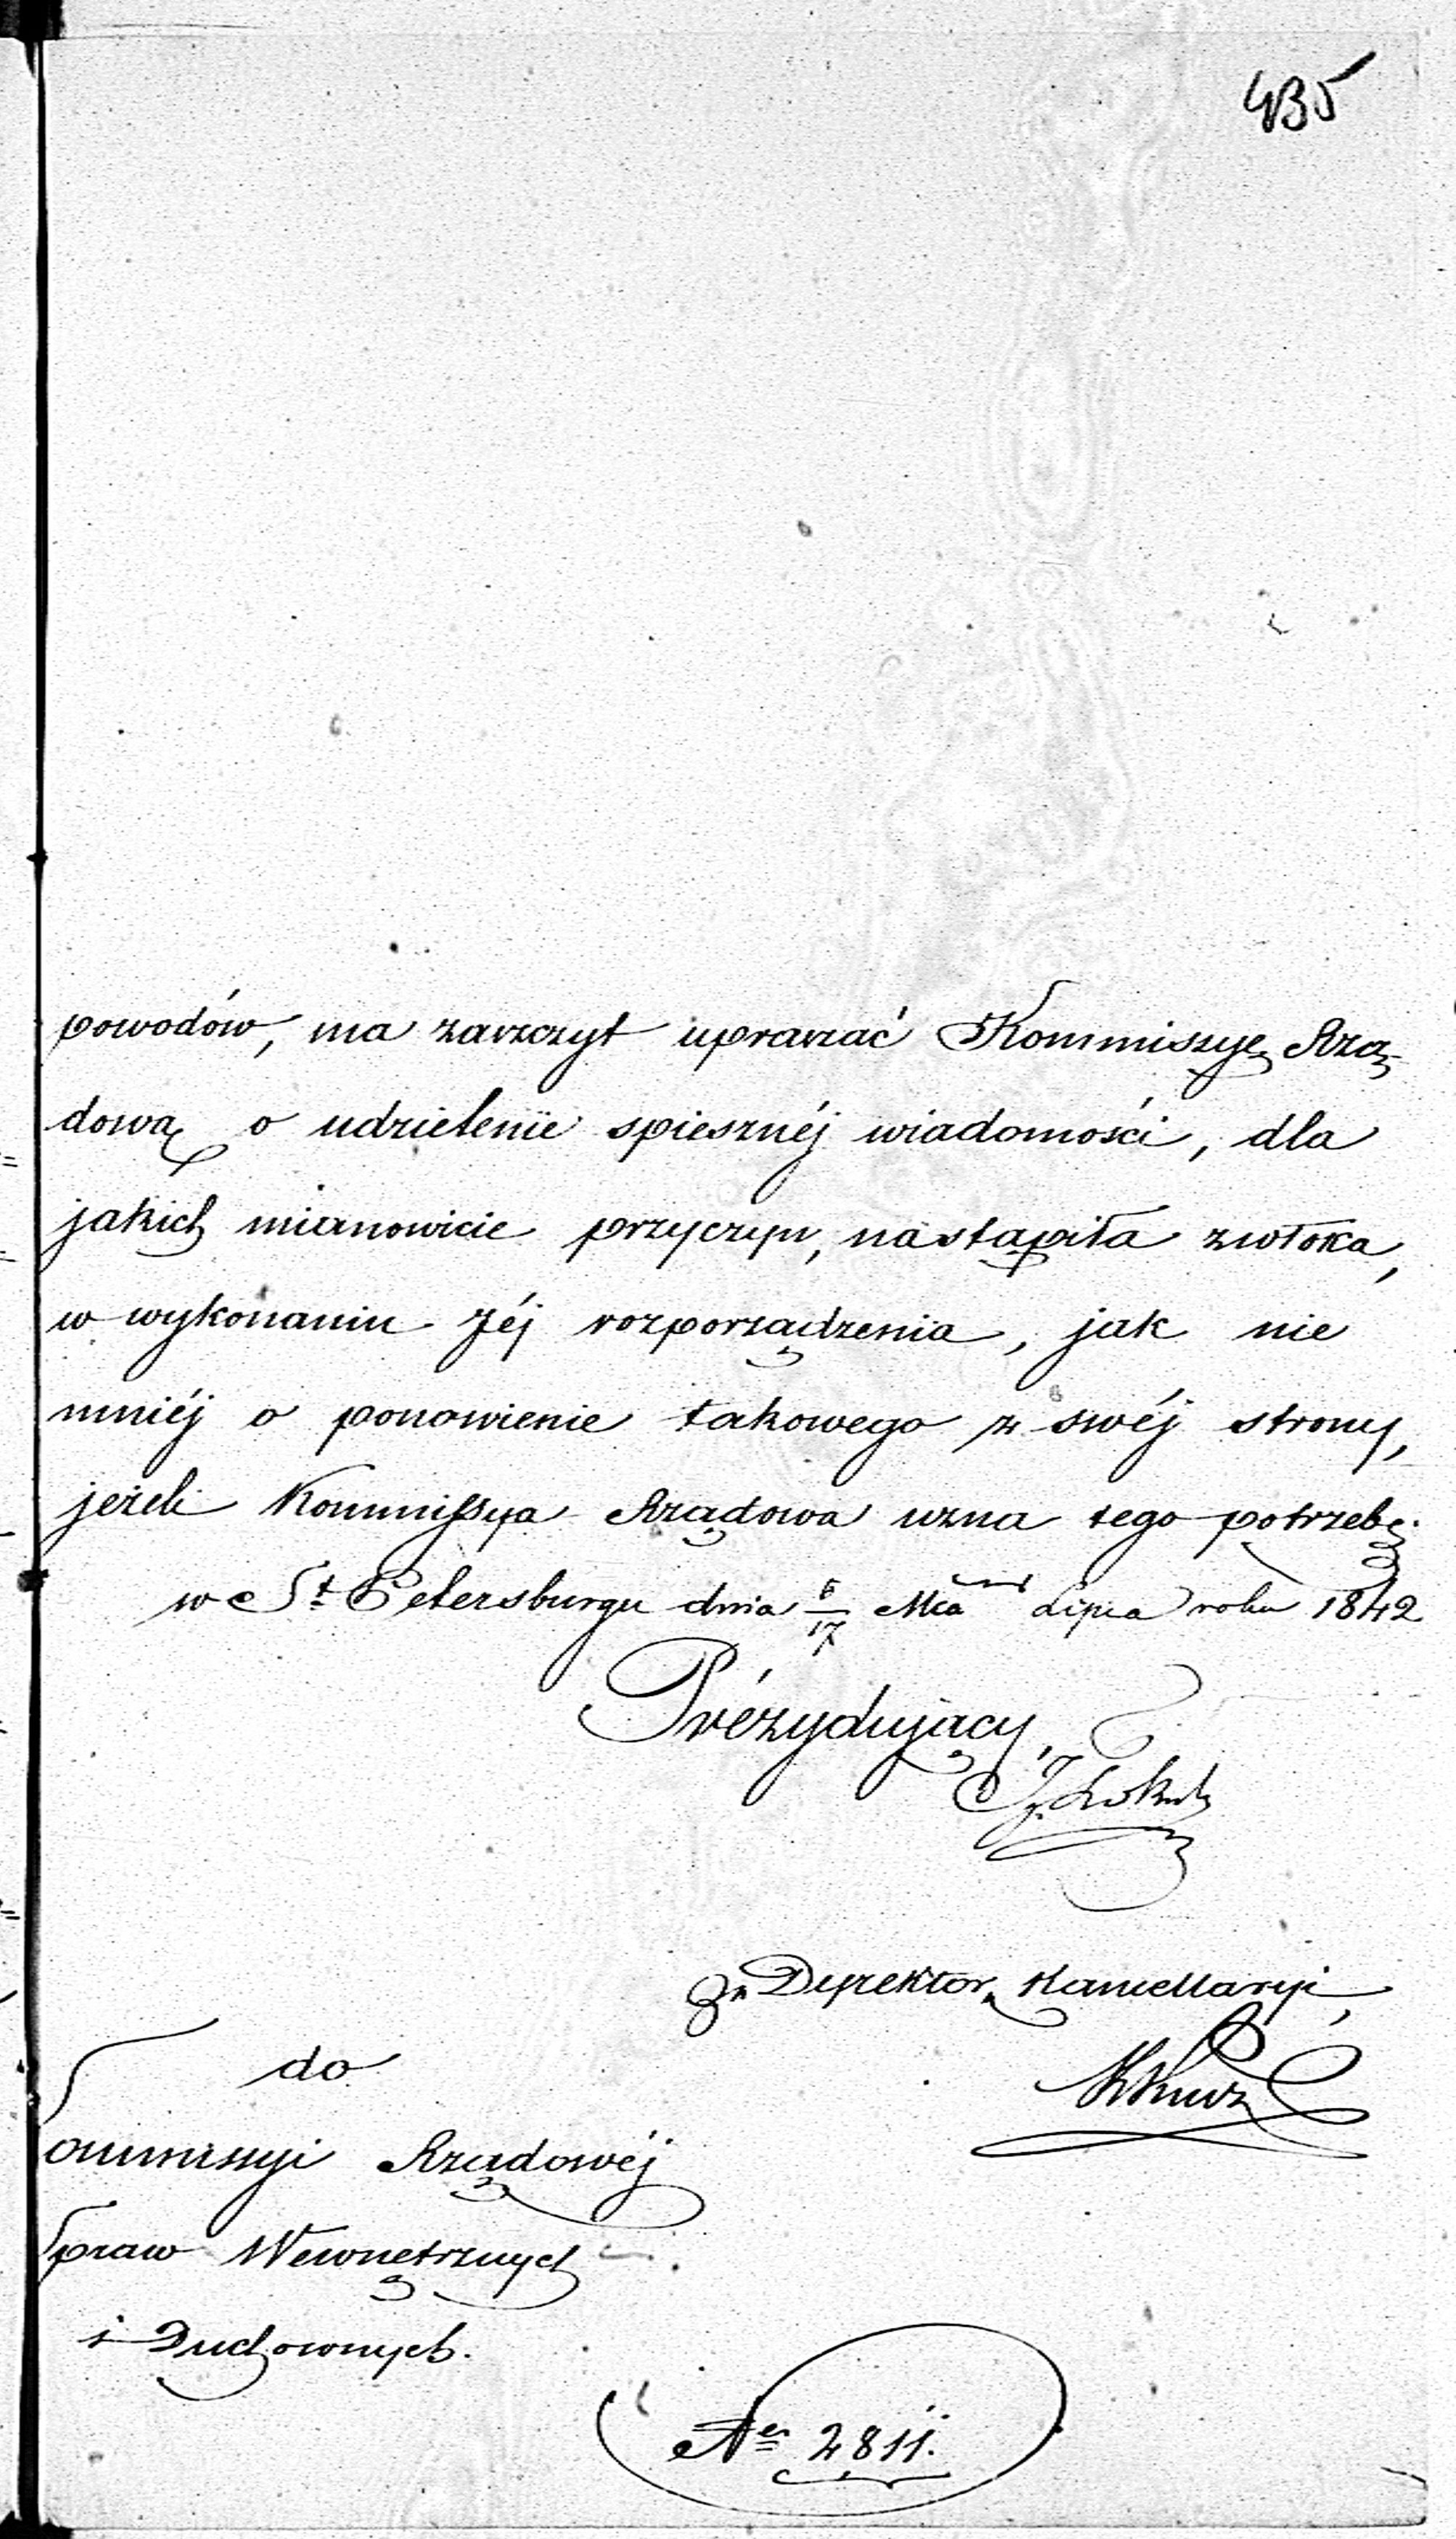 435
powodów, ma zaszczyt upraszać Kommissyę Rzą-
dową o udzielenie spiesznéj wiadomości, dla
jakich mianowicie przyczyn, nastąpiła zwłoka,
w wykonaniu Jéj rozporządzenia, jak nie
mniéj o ponowienie takowego z swéj strony,
jeżeli Kommissya Rządowa uzna tego potrzebę.
w St. Petersburgu dnia 5/17 Mca Lipca roku 1842
Prézydujący
Dyrektor Kancellaryi,
do
ommissyi Rządowéj
Spraw Wewnętrznych
i Duchownych.
Ner 2811.